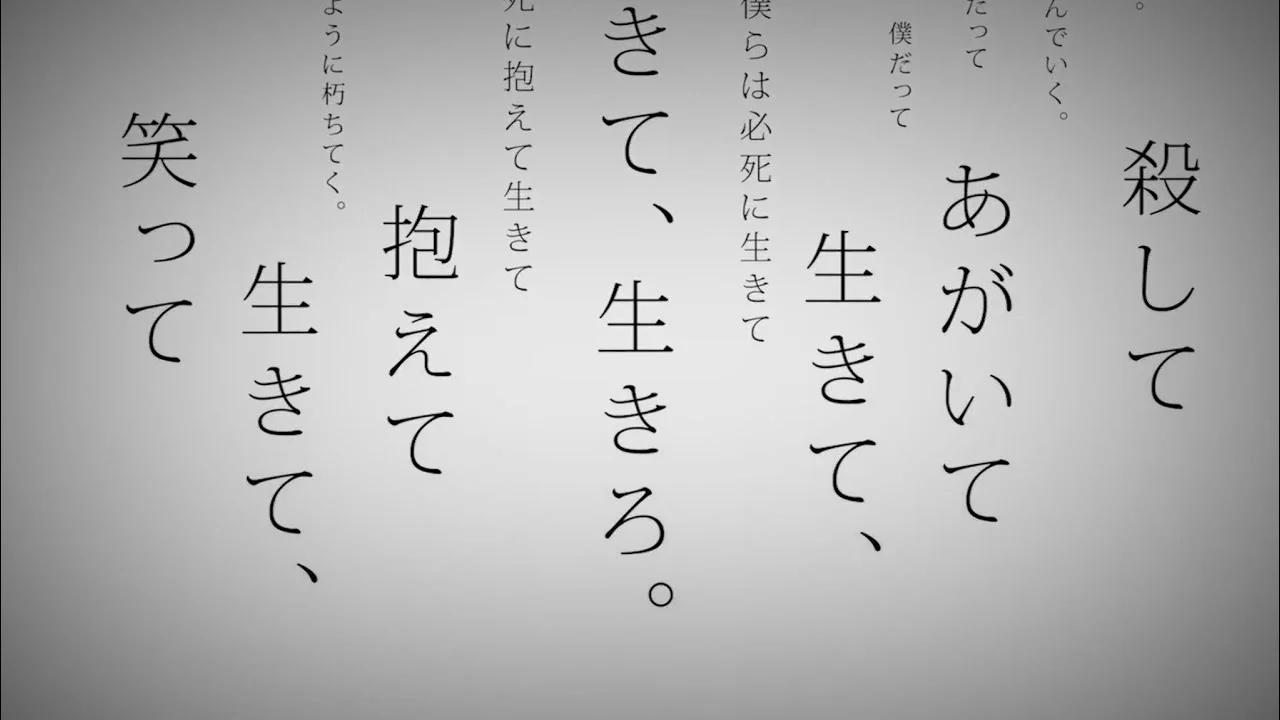 。
殺して
んでいく。
だって
あがいて
僕だって
生きて、
僕らは必死に生きて
きて、生きろ。
死に抱えて生きて
抱えて
ように朽ちてく。
生きて、
笑って